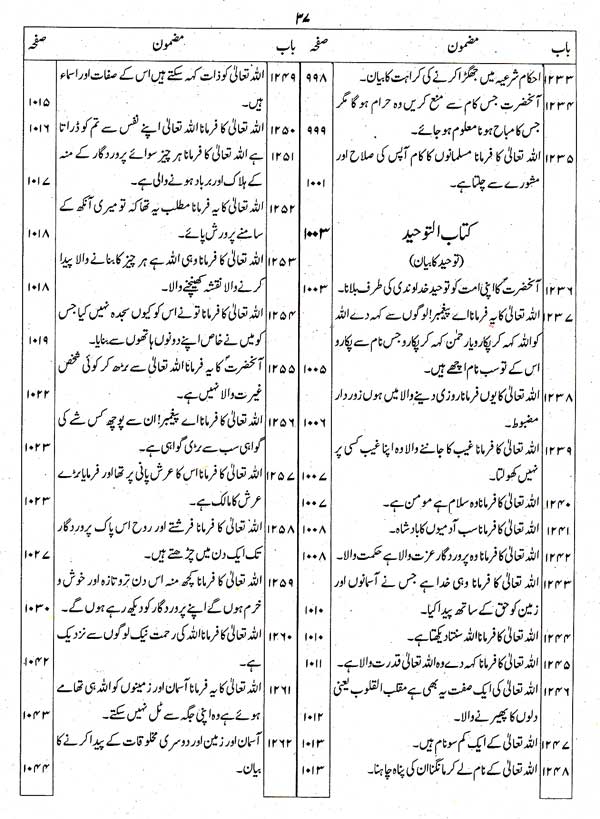 ۳۷
باب مضمون صفحہ
۱۲۳۳ احکام شرعیہ میں جھگڑا کرنے کی کراہت کا بیان۔ ۹۹۸
۱۲۳۴ آنحضرتؐ جس کام سے منع کریں وہ حرام ہو گا مگر
جس کا مباح ہونا معلوم ہو جائے۔ ۹۹۹
۱۲۳۵ اللہ تعالیٰ کا فرمانا مسلمانوں کا کام آپس کی صلاح اور
مشورے سے چلتا ہے۔ ۱۰۰۱
کتاب التوحید ۱۰۰۳
(توحید کا بیان)
۱۲۳۶ آنحضرتؐ کا اپنی امت کو توحید خداوندی کی طرف بلانا۔ ۱۰۰۳
۱۲۳۷ اللہ تعالیٰ کا یہ فرمانا اے پیغمبر! لوگوں سے کہہ دے اللہ
کو اللہ کہہ کر پکارو یا رحمٰن کہہ کر پکارو جس نام سے پکارو
اس کے تو سب نام اچھے ہیں۔ ۱۰۰۵
۱۲۳۸ اللہ تعالیٰ کا یوں فرمانا روزی دینے والا میں ہوں زوردار
مضبوط۔ ۱۰۰۶
۱۲۳۹ اللہ تعالیٰ کا فرمانا غیب کا جاننے والا وہ اپنا غیب کسی پر
نہیں کھولتا۔ ۱۰۰۷
۱۲۴۰ اللہ تعالیٰ کا فرمانا وہ سلام ہے مومن ہے۔ ۱۰۰۷
۱۲۴۱ اللہ تعالیٰ کا فرمانا سب آدمیوں کا بادشاہ۔ ۱۰۰۸
۱۲۴۲ اللہ تعالیٰ کا فرمانا وہ پروردگار عزت والا ہے حکمت والا۔ ۱۰۰۸
۱۲۴۳ اللہ تعالیٰ کا فرمانا وہی خدا ہے جس نے آسمانوں اور
زمین کو حق کے ساتھ پیدا کیا۔ ۱۰۱۰
۱۲۴۴ اللہ تعالیٰ کا فرمانا اللہ سنتا دیکھتا ہے۔ ۱۰۱۰
۱۲۴۵ اللہ تعالیٰ کا فرمانا کہہ دے وہ اللہ تعالیٰ قدرت والا ہے۔ ۱۰۱۱
۱۲۴۶ اللہ تعالیٰ کی ایک صفت یہ بھی ہے مقلب القلوب یعنی
دلوں کا پھیرنے والا۔ ۱۰۱۲
۱۲۴۷ اللہ تعالیٰ کے ایک کم سو نام ہیں۔ ۱۰۱۳
۱۲۴۸ اللہ تعالیٰ کے نام لے کر مانگنا ان کی پناہ چاہنا۔ ۱۰۱۳
باب مضمون صفحہ
۱۲۴۹ اللہ تعالیٰ کو ذات کہہ سکتے ہیں اس کے صفات اور اسماء
ہیں۔ ۱۰۱۵
۱۲۵۰ اللہ تعالیٰ کا فرمانا اللہ تعالیٰ اپنے نفس سے تم کو ڈراتا ۱۰۱۶
۱۲۵۱ ہے اللہ تعالیٰ کا فرمانا ہر چیز سوائے پروردگار کے منہ
کے ہلاک اور برباد ہونے والی ہے۔ ۱۰۱۷
۱۲۵۲ اللہ تعالیٰ کا یہ فرمانا مطلب یہ تھا کہ تو میری آنکھ کے
سامنے پرورش پائے۔ ۱۰۱۸
۱۲۵۳ اللہ تعالیٰ کا فرمانا وہی اللہ ہے ہر چیز کا بنانے والا پیدا
کرنے والا نقشہ کھینچنے والا۔ ۱۰۱۸
۱۲۵۴ اللہ تعالیٰ کا فرمانا تو نے اس کو کیوں سجدہ نہیں کیا جس
کو میں نے خاص اپنے دونوں ہاتھوں سے بنایا۔ ۱۰۱۹
۱۲۵۵ آنحضرتؐ کا یہ فرمانا اللہ تعالیٰ سے بڑھ کر کوئی شخص
غیرت والا نہیں ہے۔ ۱۰۲۲
۱۲۵۶ اللہ تعالیٰ کا فرمانا اے پیغمبر! ان سے پوچھ کس شے کی
گواہی سب سے بڑی گواہی ہے۔ ۱۰۲۳
۱۲۵۷ اللہ تعالیٰ کا فرمانا اس کا عرش پانی پر تھا اور فرمایا بڑے
عرش کا مالک ہے۔ ۱۰۲۳
۱۲۵۸ اللہ تعالیٰ کا فرمانا فرشتے اور روح اس پاک پروردگار
تک ایک دن میں چڑھتے ہیں۔ ۱۰۲۷
۱۲۵۹ اللہ تعالیٰ کا فرمانا کچھ منہ اس دن تروتازہ اور خوش و
خرم ہوں گے اپنے پروردگار کو دیکھ رہے ہوں گے۔ ۱۰۳۰
۱۲۶۰ اللہ تعالیٰ کا فرمانا اللہ کی رحمت نیک لوگوں سے نزدیک
ہے۔ ۱۰۴۲
۱۲۶۱ اللہ تعالیٰ کا یہ فرمانا آسمان اور زمینوں کو اللہ ہی تھامے
ہوئے ہے وہ اپنی جگہ سے ٹل نہیں سکتے۔ ۱۰۴۳
۱۲۶۲ آسمان اور زمین اور دوسری مخلوقات کے پیدا کرنے کا
بیان۔ ۱۰۴۴